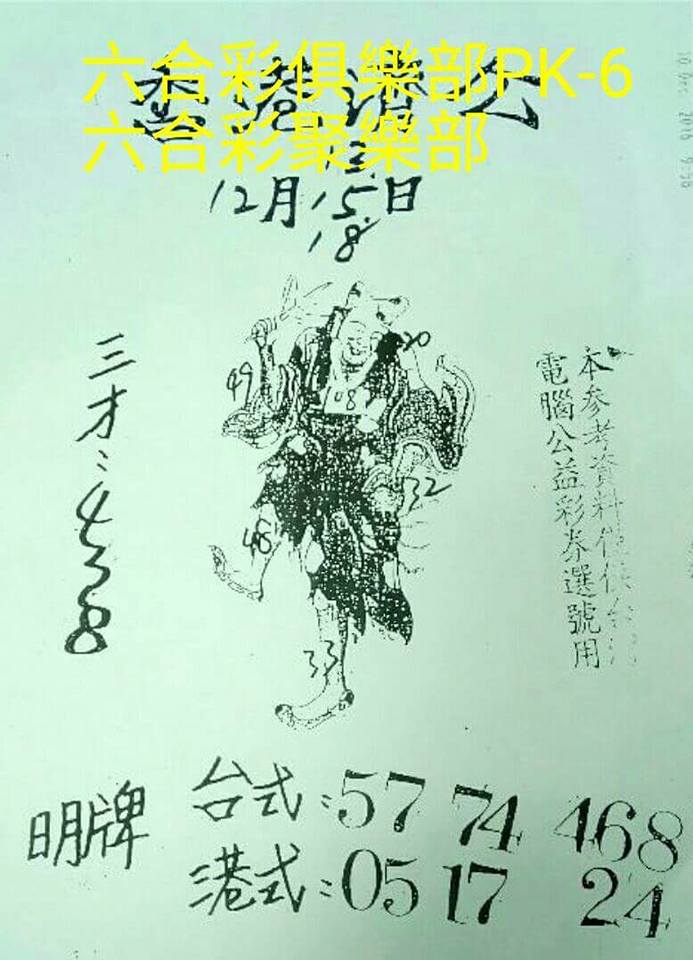 六合彩俱樂部PK-6
六合彩聚樂部
香港濟公
13.
12月15.日
18
49
20
08
32
48
33
三才:438
本參考資料僅供台灣
電腦公益彩券選號用
明牌
台式:57 74 468
港式:05 17 24